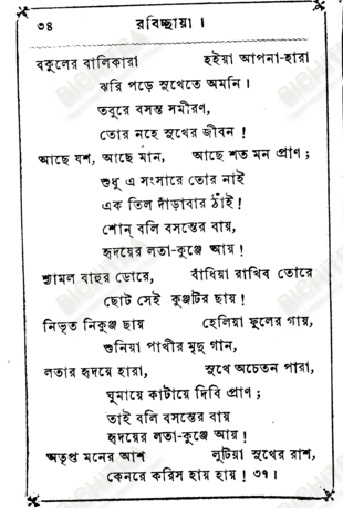 ৩৪ রবিচ্ছায়া।
বকুলের বালিকারা হইয়া আপনা-হারা
ঝরি পড়ে সুখেতে অমনি।
তবুরে বসন্ত সমীরণ,
তোর নহে সুখের জীবন!
আছে যশ, আছে মান, আছে শত মন প্রাণ;
শুধু এ সংসারে তোর নাই
এক তিল দাঁড়াবার ঠাঁই!
শোন্ বলি বসন্তের বায়,
হৃদয়ের লতা-কুঞ্জে আয়!
শ্যামল বাহুর ডোরে, বাঁধিয়া রাখিব তোরে
ছোট সেই কুঞ্জটির ছায়!
নিভৃত নিকুঞ্জ ছায় হেলিয়া ফুলের গায়,
শুনিয়া পাখীর মৃদু গান,
লতার হৃদয়ে হারা, সুখে অচেতন পারা,
ঘুমায়ে কাটায়ে দিবি প্রাণ;
তাই বলি বসন্তের বায়
হৃদয়ের লতা-কুঞ্জে আয়!
অতৃপ্ত মনের আশ লুটিয়া সুখের রাশ,
কেনরে করিস হায় হায়! ৩৭।